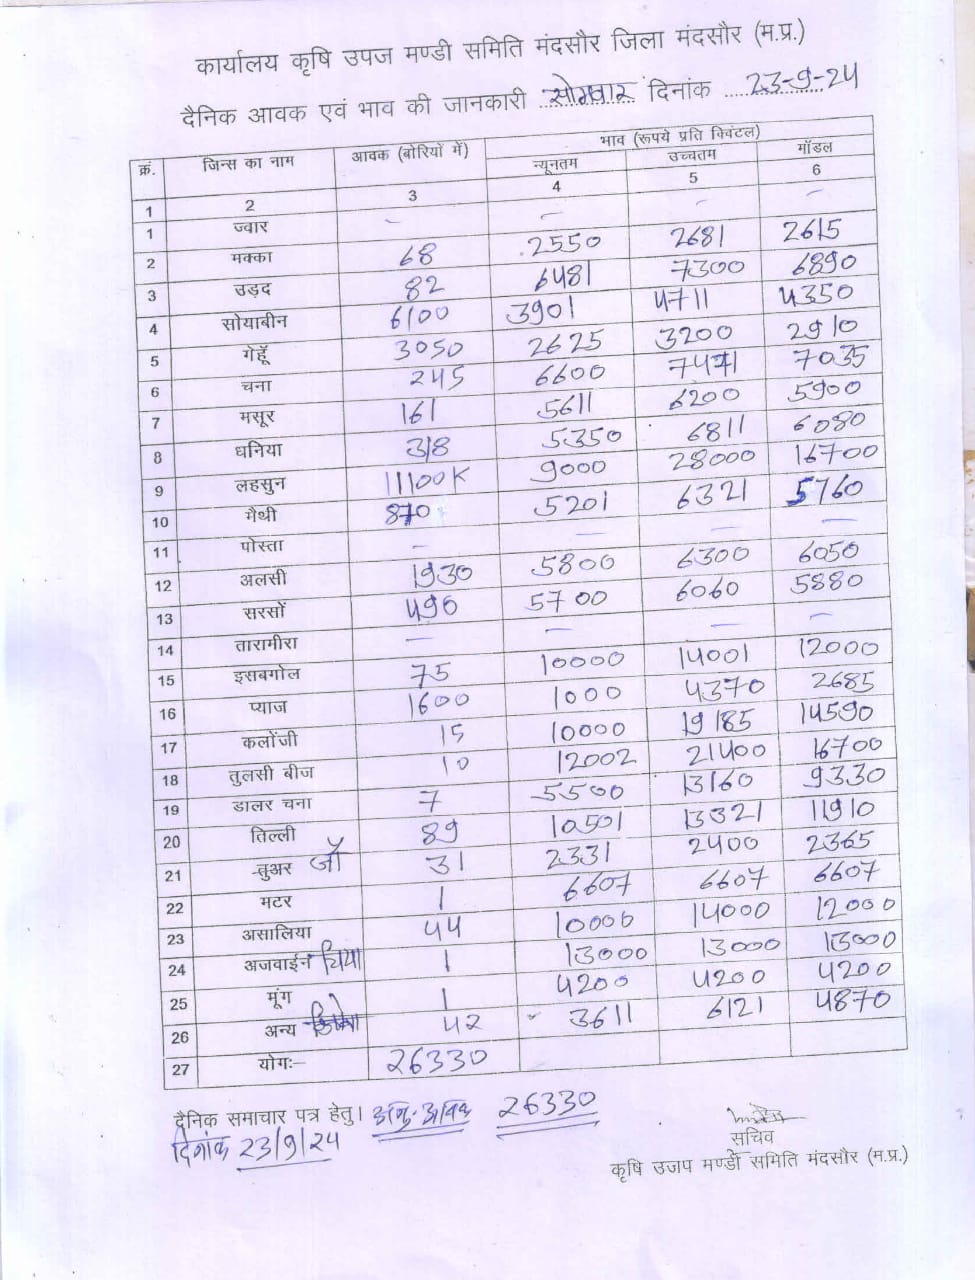 कार्यालय कृषि उपज मण्डी समिति मंदसौर जिला मंदसौर (म.प्र.)
दैनिक आवक एवं भाव की जानकारी सोमवार दिनांक 23-9-24
क्रं. जिन्स का नाम आवक (बोरियों में) भाव (रूपये प्रति क्विंटल)
न्यूनतम उच्चतम मॉडल
1 2 3 4 5 6
1 ज्वार – – – –
2 मक्का 68 2550 2681 2615
3 उड़द 82 6481 7300 6890
4 सोयाबीन 6100 3901 4711 4350
5 गेहूँ 3050 2625 3200 2910
6 चना 245 6600 7471 7035
7 मसूर 161 5611 6200 5900
8 धनिया 318 5350 6811 6080
9 लहसुन 11100K 9000 28000 16700
10 मैथी 870 5201 6321 5760
11 पोस्ता – – – –
12 अलसी 1930 5800 6300 6050
13 सरसों 496 5700 6060 5880
14 तारामीरा – – – –
15 इसबगोल 75 10000 14001 12000
16 प्याज 1600 1000 4370 2685
17 कलोंजी 15 10000 19185 14590
18 तुलसी बीज 10 12002 21400 16700
19 डालर चना 7 5500 13160 9330
20 तिल्ली 89 10501 13321 11910
21 तुअर जौ 31 2331 2400 2365
22 मटर 1 6607 6607 6607
23 असालिया 44 10000 14000 12000
24 अजवाईन चिया 1 13000 13000 13000
25 मूंग 1 4200 4200 4200
26 अन्य 42 3611 6121 4870
27 योगः– 26330
दैनिक समाचार पत्र हेतु। अनु. आवक 26330
दिनांक 23/9/24
सचिव
कृषि उजप मण्डी समिति मंदसौर (म.प्र.)